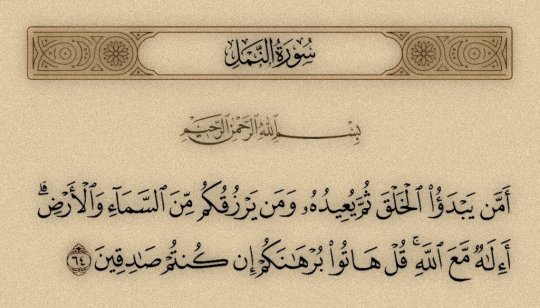 سُورَةُ النَّمْلِ
بِسْمِ ٱللَّهِ ٱلرَّحْمَٰنِ ٱلرَّحِيمِ
أَمَّن يَبْدَؤُا۟ ٱلْخَلْقَ ثُمَّ يُعِيدُهُۥ وَمَن يَرْزُقُكُم مِّنَ ٱلسَّمَآءِ وَٱلْأَرْضِ ۗ
أَءِلَٰهٌ مَّعَ ٱللَّهِ ۚ قُلْ هَاتُوا۟ بُرْهَٰنَكُمْ إِن كُنتُمْ صَٰدِقِينَ ٦٤